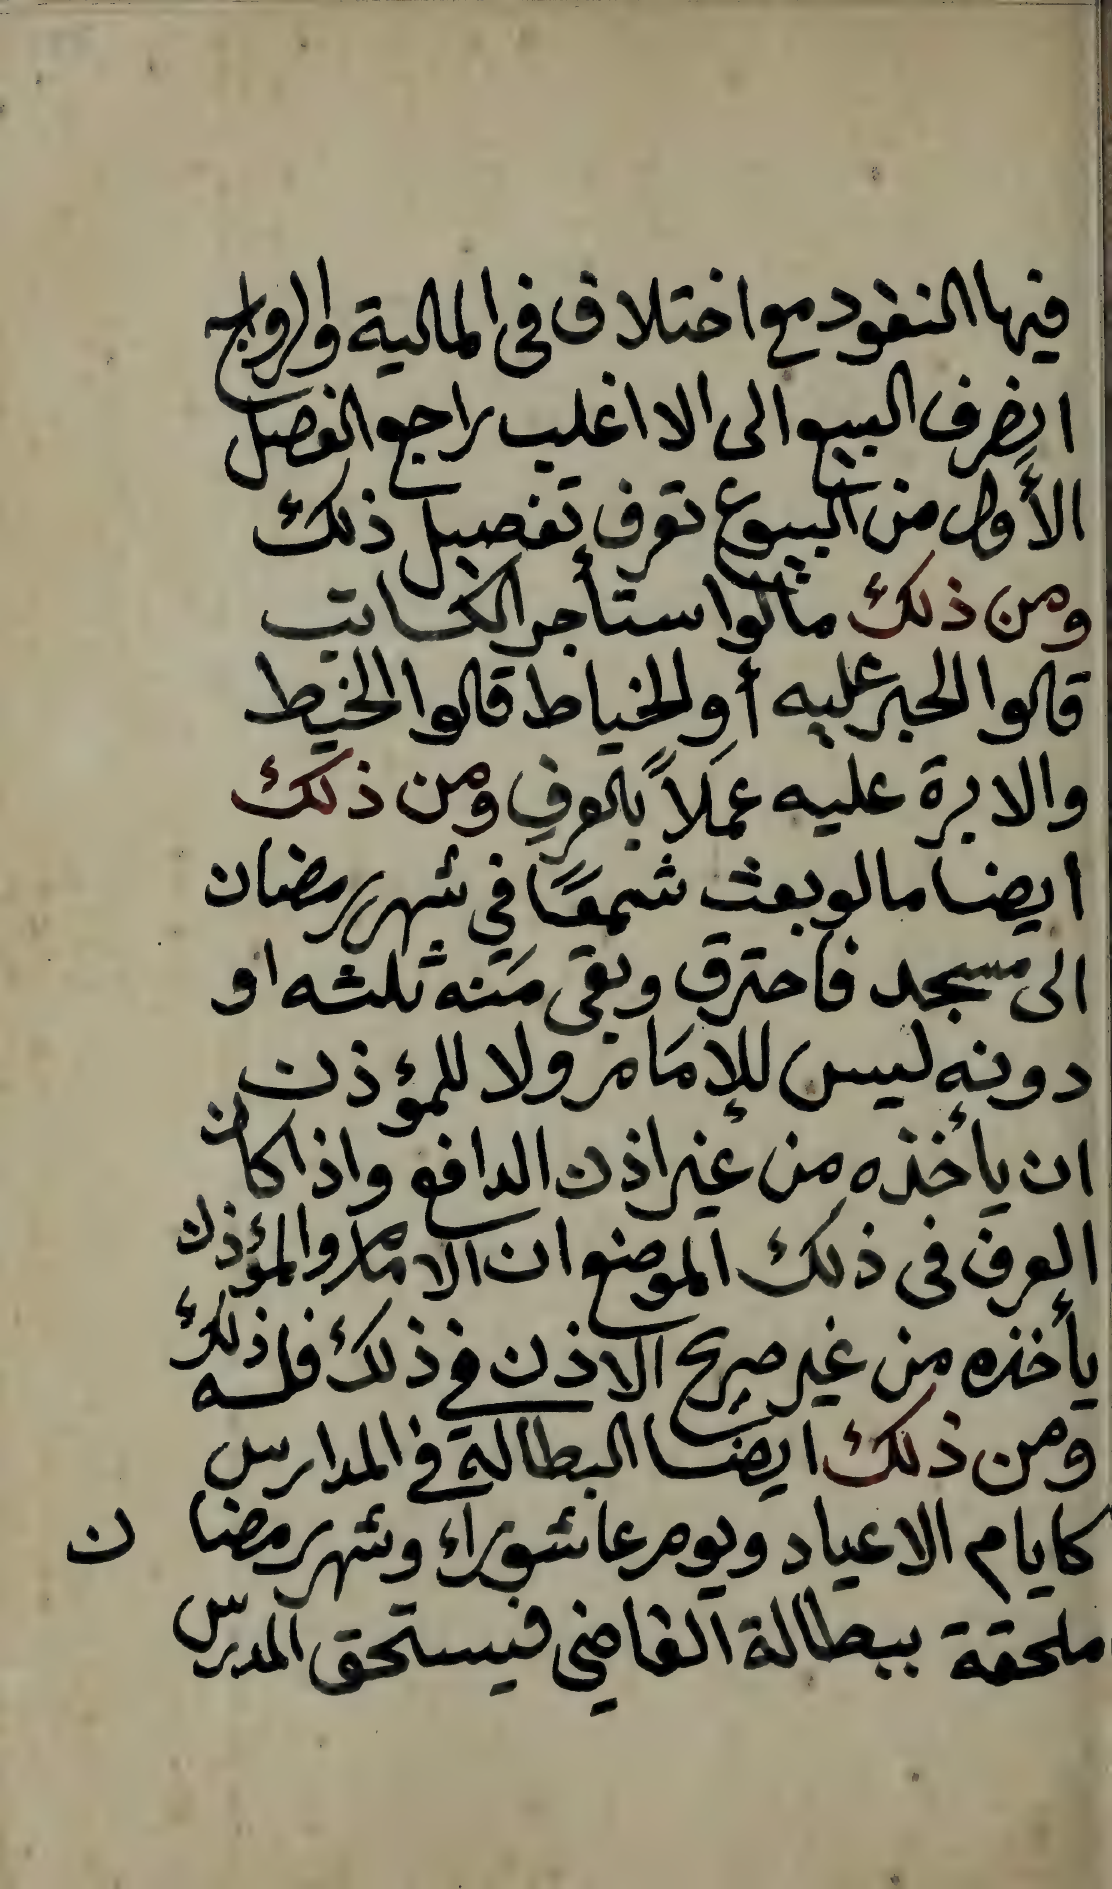 فيها النقود مع اختلاف في المالية والرواج
انصرف البيع الى الااغلب راجع الفصل
الأول من البيوع تعرف تفصيل ذلك
ومن ذلك مالوا ستأجر الكاتب
قالوا الحبر عليه أو الخياط قالوا الخيط
والابرة عليه عملاً بالعرف ومن ذلك
ايضا مالو بعث شمعًا في شهر رمضان
الى مسجد فاحترق وبقى منه ثلثه او
دونه ليس للإمام ولا للمؤذن
ان يأخذه من غير اذن الدافع واذا كان
العرف في ذلك الموضع ان الامام والمؤذن
يأخذه من غير صريح الاذن في ذلك فله ذلك
ومن ذلك ايضا البطالة في المدارس
كايام الاعياد ويوم عاشوراء وشهر رمضا ن
ملحقة ببطالة القاضي فيستحق المدرس